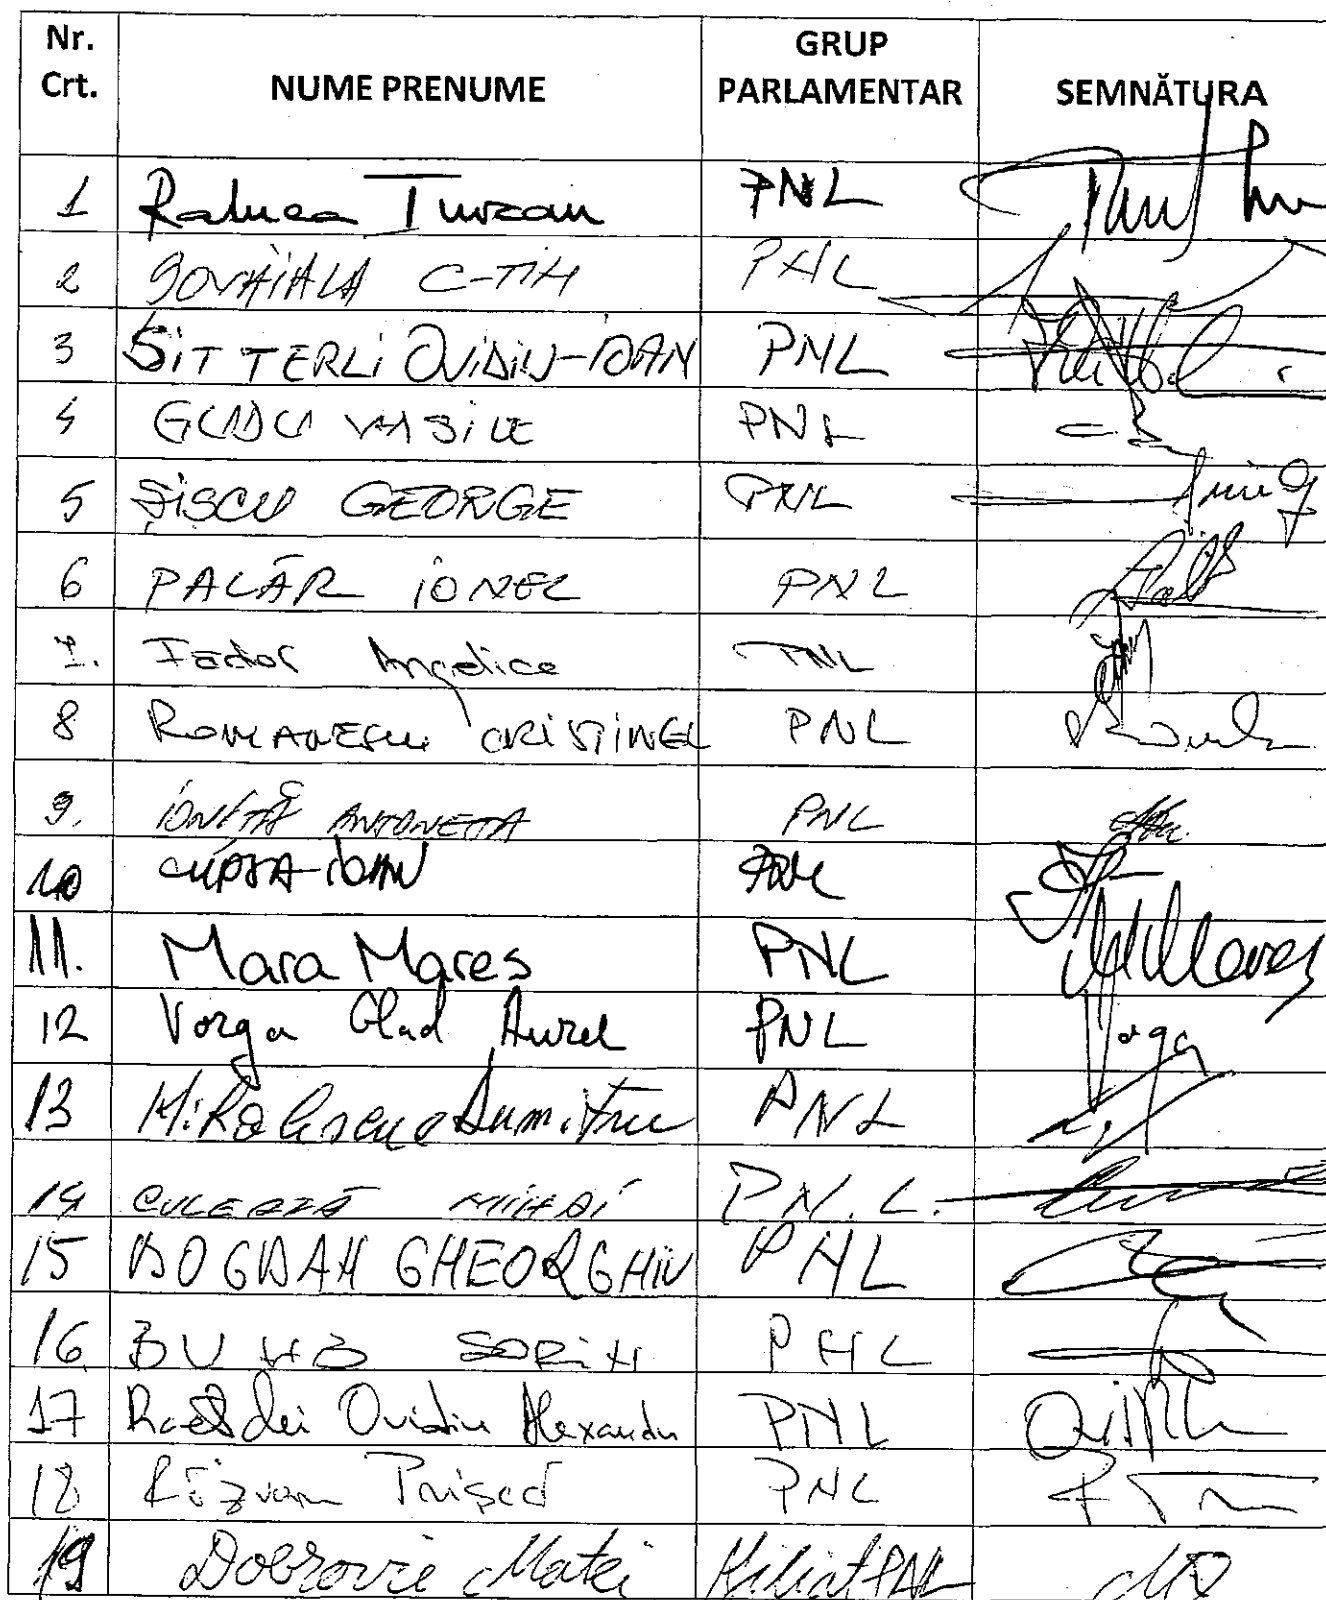 Nr. Crt. NUME PRENUME GRUP PARLAMENTAR SEMNĂTURA
1 Raluca Turcan PNL
2 ȘOVĂIALĂ C-TIN PNL
3 SITTERLI OVIDIU-IOAN PNL
4 GUDU VASILE PNL
5 ȘIȘCU GEORGE PNL
6 PALĂR IONEL PNL
7. Fădor Angelica PNL
8 ROMANESCU CRISTINEL PNL
9. IONIȚĂ ANTONETA PNL
10 CUPȘA IOAN PNL
11. Mara Mares PNL
12 Varga Glad Aurel PNL
13 Mihalescul Dumitru PNL
14 CULEAFĂ MIHAI P.N.L.
15 BOGDAN GHEORGHIU PNL
16 BUMB SORIN PNL
17 Raețchi Ovidiu Alexandru PNL
18 Răzvan Prișcă PNL
19 Dobrovie Matei Afiliat PNL